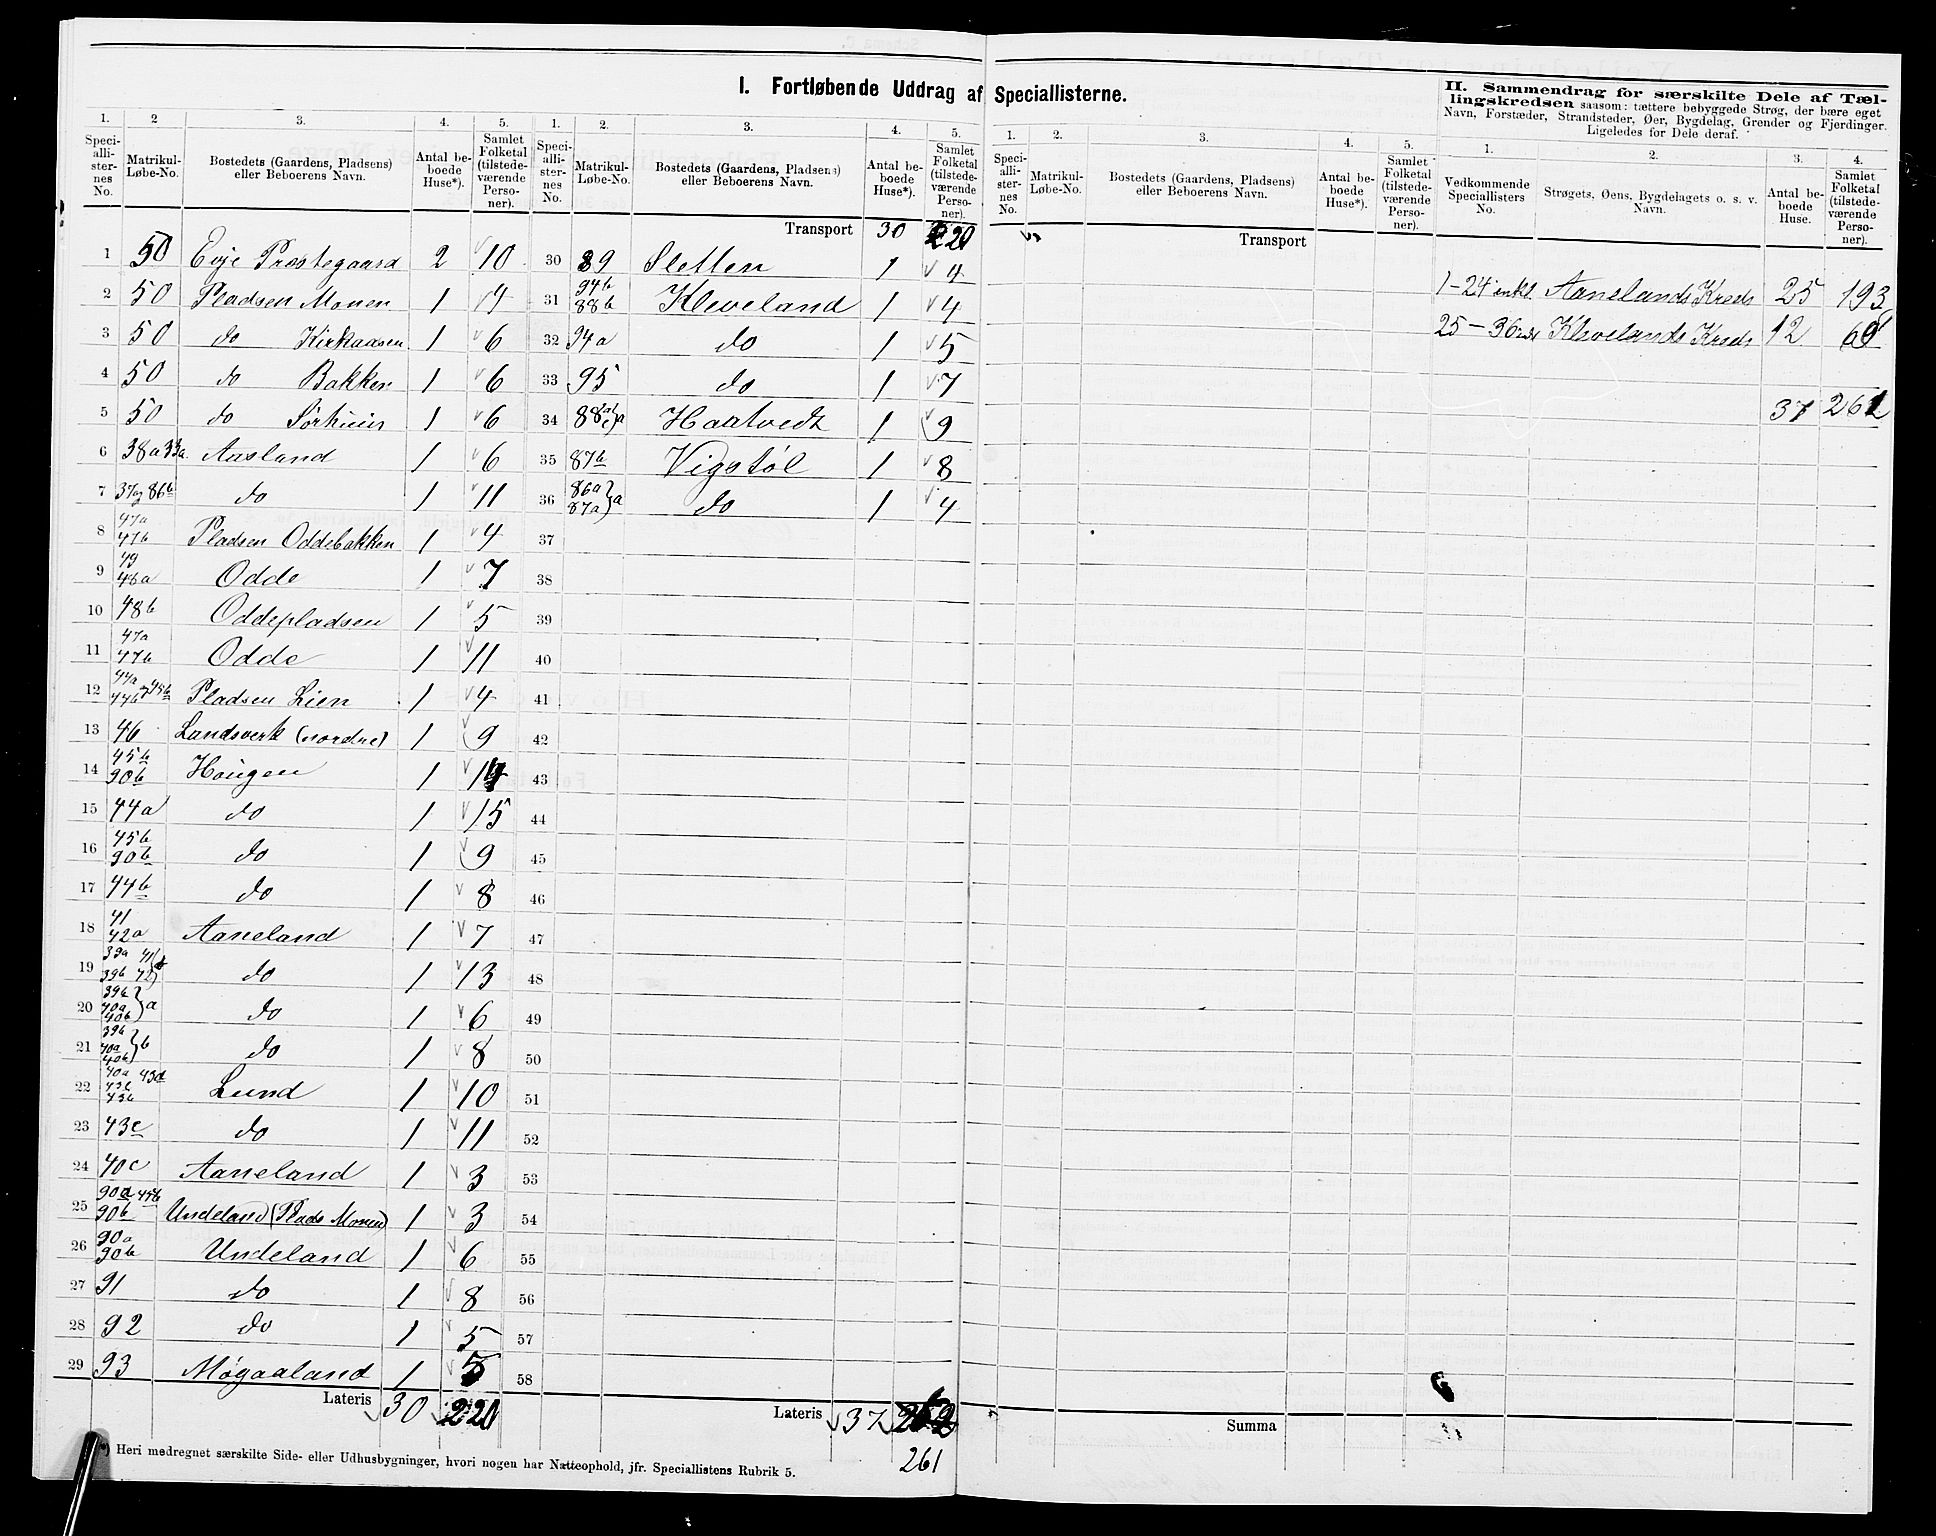 I. Fortløbende Uddrag af Speciallisterne.
1. 2 3. 4. 5.
Speciallisternes No. Matrikul-Løbe-No. Bostedets (Gaardens, Pladsens) eller Beboerens Navn. Antal beboede Huse*). Samlet Folketal (tilstedeværende Personer).
1 50 Evje Præstegaard 2 10
2 50 Pladsen Monen 1 7
3 50 do Kirkaasen 1 6
4 50 do Bakken 1 6
5 50 do Sørhuus 1 6
6 38a 33a Aasland 1 6
7 37 og 86b do 1 11
8 47a 47b Pladsen Oddebakken 1 4
9 49 48a Odde 1 7
10 48b Oddepladsen 1 5
11 47a 47b Odde 1 11
12 44a 44b 45b Pladsen Lien 1 4
13 46 Landsverk (nordre) 1 9
14 45b 90b Hougen 1 14
15 44a do 1 15
16 45b 90b do 1 9
17 44b do 1 8
18 41 42a Aaneland 1 7
19 39a 41 39b 42 do 1 13
20 39b 40a 40b } a do 1 6
21 39b 40a 40b } b do 1 8
22 40a 43d 43b Lund 1 10
23 43c do 1 11
24 40c Aaneland 1 3
25 90d 45b 90b Undeland (Plads Monen) 1 3
26 90a 90b Undeland 1 6
27 91 do 1 8
28 92 do 1 5
29 93 Møgaaland 1 5
Lateris 30 220
*) Heri medregnet særskilte Side- eller Udhusbygninger, hvori nogen har Natteophold, jfr. Speciallistens Rubrik 5.
1. 2. 3. 4. 5.
Speciallisternes No. Matrikul-Løbe-No. Bostedets (Gaardens, Pladsens) eller Beboerens Navn. Antal beboede Huse*). Samlet Folketal (tilstedeværende Personer).
Transport 30 220
30 89 Sletten 1 4
31 94b 88b Kleveland 1 4
32 94a do 1 5
33 95 do 1 7
34 88 a Haatvedt 1 9
35 87b Vigstøl 1 8
36 86a 87a } a do 1 4
37
38
39
40
41
42
43
44
45
46
47
48
49
50
51
52
53
54
55
56
57
58
Lateris 37
261
1. 2. 3. 4. 5.
Speciallisternes No. Matrikul-Løbe-No. Bostedets (Gaardens, Pladsens) eller Beboerens Navn. Antal beboede Huse*). Samlet Folketal (tilstedeværende Personer).
Transport
Summa
II. Sammendrag for særskilte Dele af Tællingskredsen saasom: tættere bebyggede Strøg, der bære eget
Navn, Forstæder, Strandsteder, Øer, Bygdelag, Grender og Fjerdinger.
Ligeledes for Dele deraf.
1. 2. 3. 4.
Vedkommende Speciallisters No. Strøgets, Øens, Bygdelagets o. s. v. Navn. Antal beboede Huse. Samlet Folketal (tilstedeværende Personer).
1-24 inkl. Aanelands Kreds 25 193
25-36 Klevelands Kreds 12
37 261